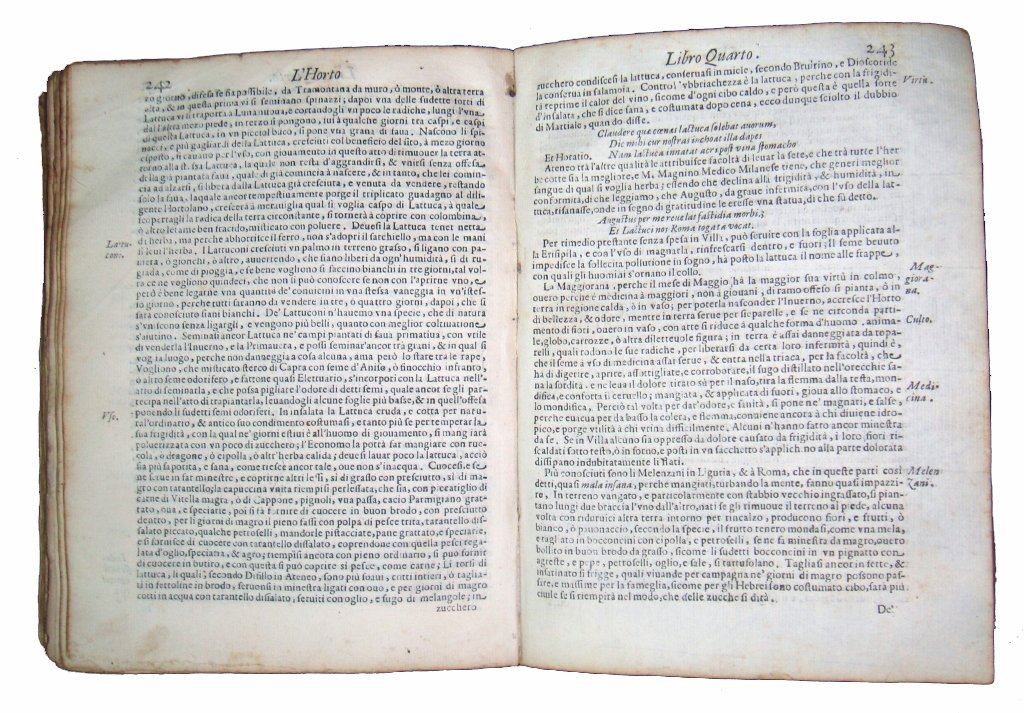 242
L'Horto
no giorno, difesa se sia possibile, da Tramontana da muro, ò monte, ò altra terra
alta, & in questa prima vi si seminano spinazzi; dapoi vna delle sudette sorti di
Lattuca vi si traporta Luna nuoua, e contandogli vn poco le radiche, lungi l'vna
dall'altra mezo piede, in terzo si pongono, iui à qualche giorni tra caspi, e caspi
di questa Lattuca, in vn picciol buco, si pone vna grana di faua. Nascono li spi-
e più gagliardi della Lattuca, cresciuti col beneficio del sito, à mezo giorno
esposto, si cauano per l'vso, con giouamento in questo atto di rimouer la terra at-
torno alla stessa Lattuca, la quale non resta d'aggrandirsi, & vnirsi senza offesa
della già piantata faua, qual di già comincia à nascere, & in tanto, che lei comin-
cia ad alzarsi, si libera dalla Lattuca già cresciuta, e venuta da vendere, restando
solo la faua, laquale ancor tempestiuamente porge il triplicato guadagno al dili-
gente Hortolano, crescerà à merauiglia qual si voglia caspo di Lattuca, à quale
scopertagli la radica della terra circonstante, si tornerà à coprire con colombina,
ò altro letame ben fracido, misticato con poluere. Deuesi la Lattuca tener netta
di herba, ma perche abhorrisce il ferro, non s'adopri il sarchiello, ma con le mani
si leui l'herba. I Lattuconi cresciuti vn palmo in terreno grasso, si ligano con pa-
uiera, ò gionchi, ò altro, auuertendo, che siano liberi da ogn'humidità, si di ru-
giada, come di pioggia, e se bene vogliono si faccino bianchi in tre giorni, tal vol-
ta ce ne vogliono quindeci, che non si può conoscere se non con l'aprirne vno, e
però è bene legarne vna quantità de' conuicini in vna stessa vaneggia in vn'istes-
so giorno, perche tutti saranno da vendere in tre, ò quattro giorni, dapoi, che si
sarà conosciuto siani bianchi. De' Lattuconi n'hauemo vna specie, che di natura
s'vniscono senza ligargli, e vengono più belli, quanto con meglior coltiuatione
s'aiutino. Seminasi ancor Lattuca ne' campi piantati di faua primatiua, con vtile
di venderla l'Inuerno, e la Primauera, e possi seminar'ancor trà grani, & in qual si
voglia luogo, perche non danneggia cosa alcuna, ama però lo stare tra le rape,
Vogliono, che misticato sterco di Capra con seme d'Aniso, ò finocchio insianto,
ò altro seme odorifero, e fattone quasi Elettuario, s'incorpori con la Lattuca nell'-
atto di seminarla, e che dopo pigliarà l'odore di detti semi, quale ancor se gli par-
tecipa nell'atto di trapiantarla, leuandogli alcune foglie più basse, & in quell'offesa
ponendo li sudetti semi odoriferi. In insalata la Lattuca cruda, e cotta per natu-
ral'ordinario, & antico suo condimento costumasi, e tanto più se per temperar la
sua frigidità, con la qual ne' giorni estiui è all'huomo di giouamento, si mangiarà
poluerizzata con vn poco di zucchero; l'Economo la potrà condire ancor con ru-
cola, ò dragone, ò cipolla, ò altr'herba calida; deuesi lauar poco la lattuca, acciò
sia più saporita, e sana, come riesce ancor tale, oue non s'inacqua. Cuocesi, e se
ne serue in far minestre, e coprirne altri lessi, si di grasso con presciutto, si di ma-
gro con tarantello; la capuccina vnita riempisi perlessata, che sia, con piccatiglio di
carne di Vitella magra, ò di Cappone, pignoli, vua passa, cacio Parmigiano grat-
tato, oua, e speciarie, poi si fà fornire di cuocere in buon brodo, con presciutto
dentro, per li giorni di magro il pieno fassi con polpa di pesce trita, tarantello dis-
salato piccato, qualche petroselli, mandorle pistacciate, pane grattato, e speciarie,
e si fornisce di cuocere con tarantello dissalato, coprendone con quella pesci rega-
lata d'oglio, speciaria, & agro; riempisi ancora con pieno ordinario, si può fornir
di cuocere in butiro, e con questa si può coprire si pesce, come carne; Li torsi di
lattuca, li quali; secondo Difilo in Ateneo, sono più soaui, cotti interi, ò taglia-
ti in fettoline in brodo, seruensi in minestra ligati con ouo, e per giorni di magro
cotti in acqua con tarantello dissalato, seruiti con oglio, e sugo di melangole; in
zucchero
Lattu-
cone.
Vso.
Libro Quarto.
243
zucchero condiscesi la lattuca, conseruasi in miele, secondo Bruirino, e Dioscoride
la conserua in salamoia. Control' vbbriachezza è la lattuca, perche con la frigidi-
tà reprime il calor del vino, sicome d'ogni cibo caldo, e però questa è quella sorte
d'insalata, che si dice sana, e costumata dopo cena, ecco dunque sciolto il dubbio
di Martiale, quando disse.
Claudere qua cœnas lactuca solebat auorum,
Dic mihi cur nostras inchoat illa dapes
Et Horatio.
Nam lactuca innatat acri post vina stomacho
Ateneo trà l'altre qualità le attribuisce facoltà di leuar la sete, e che trà tutte l'her
be cotte sia la megliore, e M. Magnino Medico Milanese tiene, che generi meglior
sangue di qual si voglia herba; essendo che declina alla frigidità, & humidità, in
conformità, di che leggiamo, che Augusto, da graue infermità, con l'vso della lat-
tuca, risanasse, onde in segno di gratitudine le eresse vna statua, di che fù detto.
Augustus per me reuelat fastidia morbi;
Et Lactuci nos Roma togata vocat.
Per rimedio prestante senza spesa in Villa, può seruire con la foglia applicata al-
la Erisipila, e con l'vso di magnarla, rinfrescarsi dentro, e fuori; Il seme beuuto
impedisce la sollecita pollutione in sogno, hà posto la lattuca il nome alle frappe,
con quali gli huomini s'ornano il collo.
La Maggiorana, perche il mese di Maggio hà la maggior sua virtù in colmo,
ouero perche è medicina à maggiori, non à giouani, di ramo offeso si pianta, ò in
terra in regione calda, ò in vaso; per poterla nasconder l'Inuerno, accresce l'Horto
di bellezza, & odore, mentre in terra serue per separelle, e se ne circonda parti-
mento di fiori, ouero in vaso, con arte si riduce à qualche forma d'huomo, anima-
le, globo, carrozze, ò altra diletteuole figura; in terra è assai danneggiata da topa-
relli, quali rodono le sue radiche, per liberarsi da certa loro infermità, quindi è,
che il seme à vso di medicina assai serue, & entra nella triaca, per la facoltà, che
hà di digerire, aprire, assottigliare, e corroborare, il sugo distillato nell'orecchie sa-
na la sordità, e ne leua il dolore tirato sù per il naso, tira la flemma dalla testa, mon-
difica, e conforta il ceruello; mangiata, & applicata di fuori, gioua allo stomaco, e
lo mondifica. Perciò tal volta per dar'odore, e sanità, si pone ne' magnari, e salse,
perche euacua per da basso la colera, e flemma, conuiene ancora à chi diuiene idro-
pico, e porge vtilità à chi vrina difficilmente. Alcuni n'hanno fatto ancor minestra
da se. Se in Villa alcuno sia oppresso da dolore causato da frigidità, i loro fiori ri-
scaldati sotto testo, ò in forno, e posti in vn sacchetto s'applichino alla parte dolorata
dissipano indubitatamente li flati.
Più conosciuti sono li Melenzani in Liguria, & à Roma, che in queste parti così
detti, quasi mala insana, perche mangiati, turbando la mente, fanno quasi impazzi-
re. In terreno vangato, e particolarmente con stabbio vecchio ingrassato, si pian-
tano lungi due braccia l'vno dall'altro, nati se gli rimuoue il terreno al piede, alcuna
volta con ridurui altra terra intorno per rincalzo, producono fiori, e frutti, ò
bianco, ò pauonaccio, secondo la specie, il frutto tenero mondasi, come vna mela,
e tagliato in bocconcini con cipolla, e petroselli, se ne fà minestra da magro, ouero
bollito in buon brodo da grasso, sicome li sudetti bocconcini in vn pignatto con
agreste, e pepe, petroselli, oglio, e sale, si tartufolano. Tagliasi ancor in fette, &
infarinato si frigge, quali viuande per campagna ne' giorni di magro possono pas-
sare, e massime per la fameglia, sicome per gli Hebrei sono costumato cibo, sarà più
ciuile se si riempirà nel modo, che delle zucche si dirà.
De'
Virtù.
Mag-
giora-
na.
Culto.
Medi-
cina.
Melen
zani.